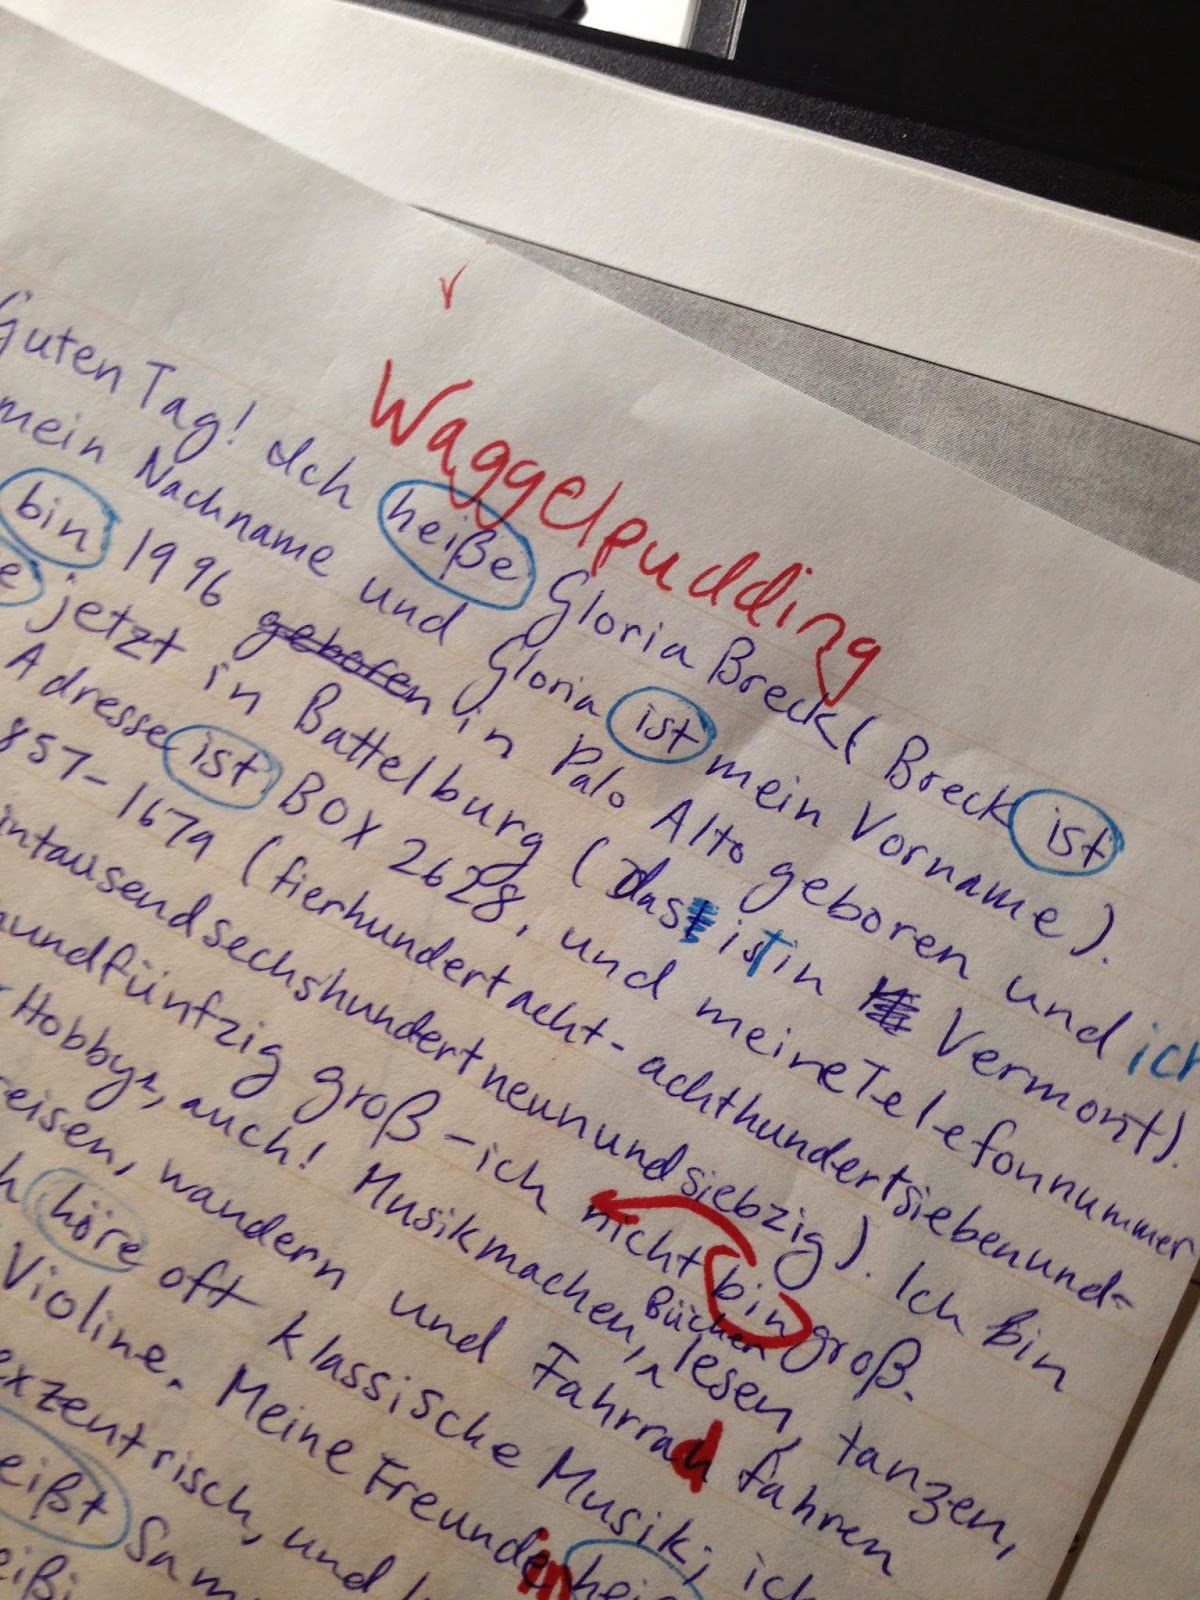 Waggelpudding
Guten Tag! Ich heiße Gloria Breck (Breck ist
mein Nachname und Gloria ist mein Vorname).
bin 1996 geboren in Palo Alto geboren und ich
e jetzt in Battelburg (das ist in Vermont).
Adresse ist BOX 2628, und meine Telefonnummer
857-1679 (fierhundertacht-achthundertsiebenund-
intausendsechshundertneunundsiebzig). Ich bin
undfünfzig groß - ich nicht bin groß.
Hobbys, auch! Musik machen, Bücher lesen, tanzen,
reisen, wandern und Fahrrad fahren
h höre oft klassische Musik; ich
Violine. Meine Freundin
exzentrisch, und
eißt Sam